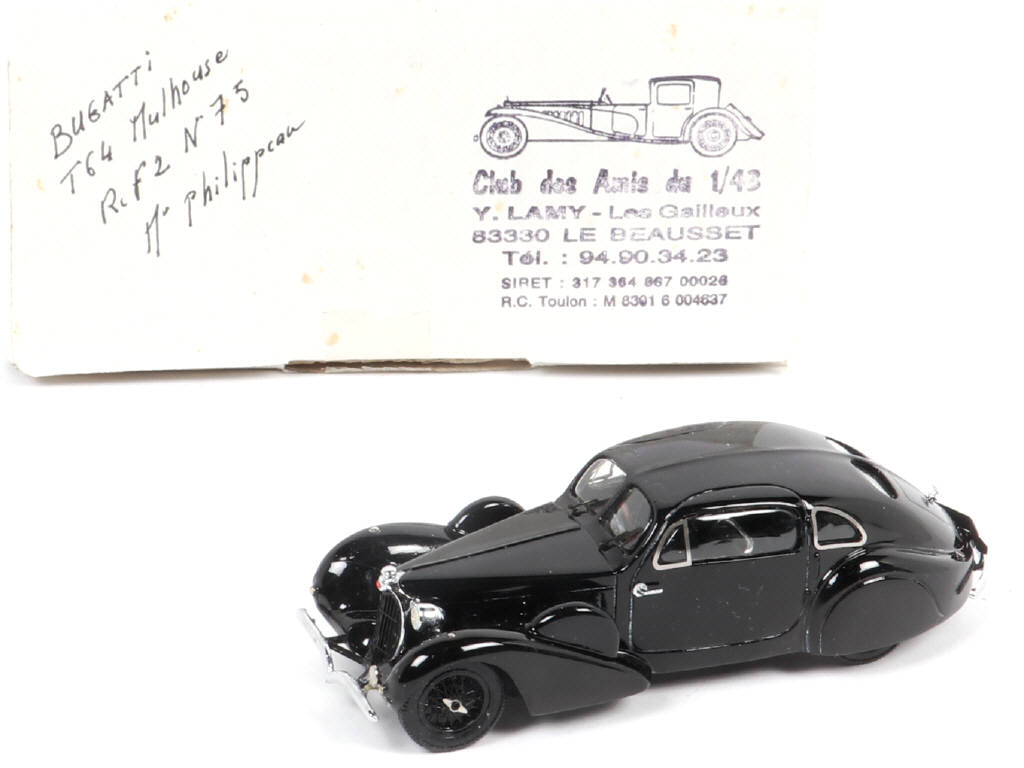 BUGATTI
T64 Mulhouse
R.F2 N° 75
Mr philippeau
Club des Amis du 1/43
Y. LAMY - Les Gailleux
83330 LE BEAUSSET
Tél. : 94.90.34.23
SIRET : 317 364 867 00026
R.C. Toulon : M 8391 6 004637